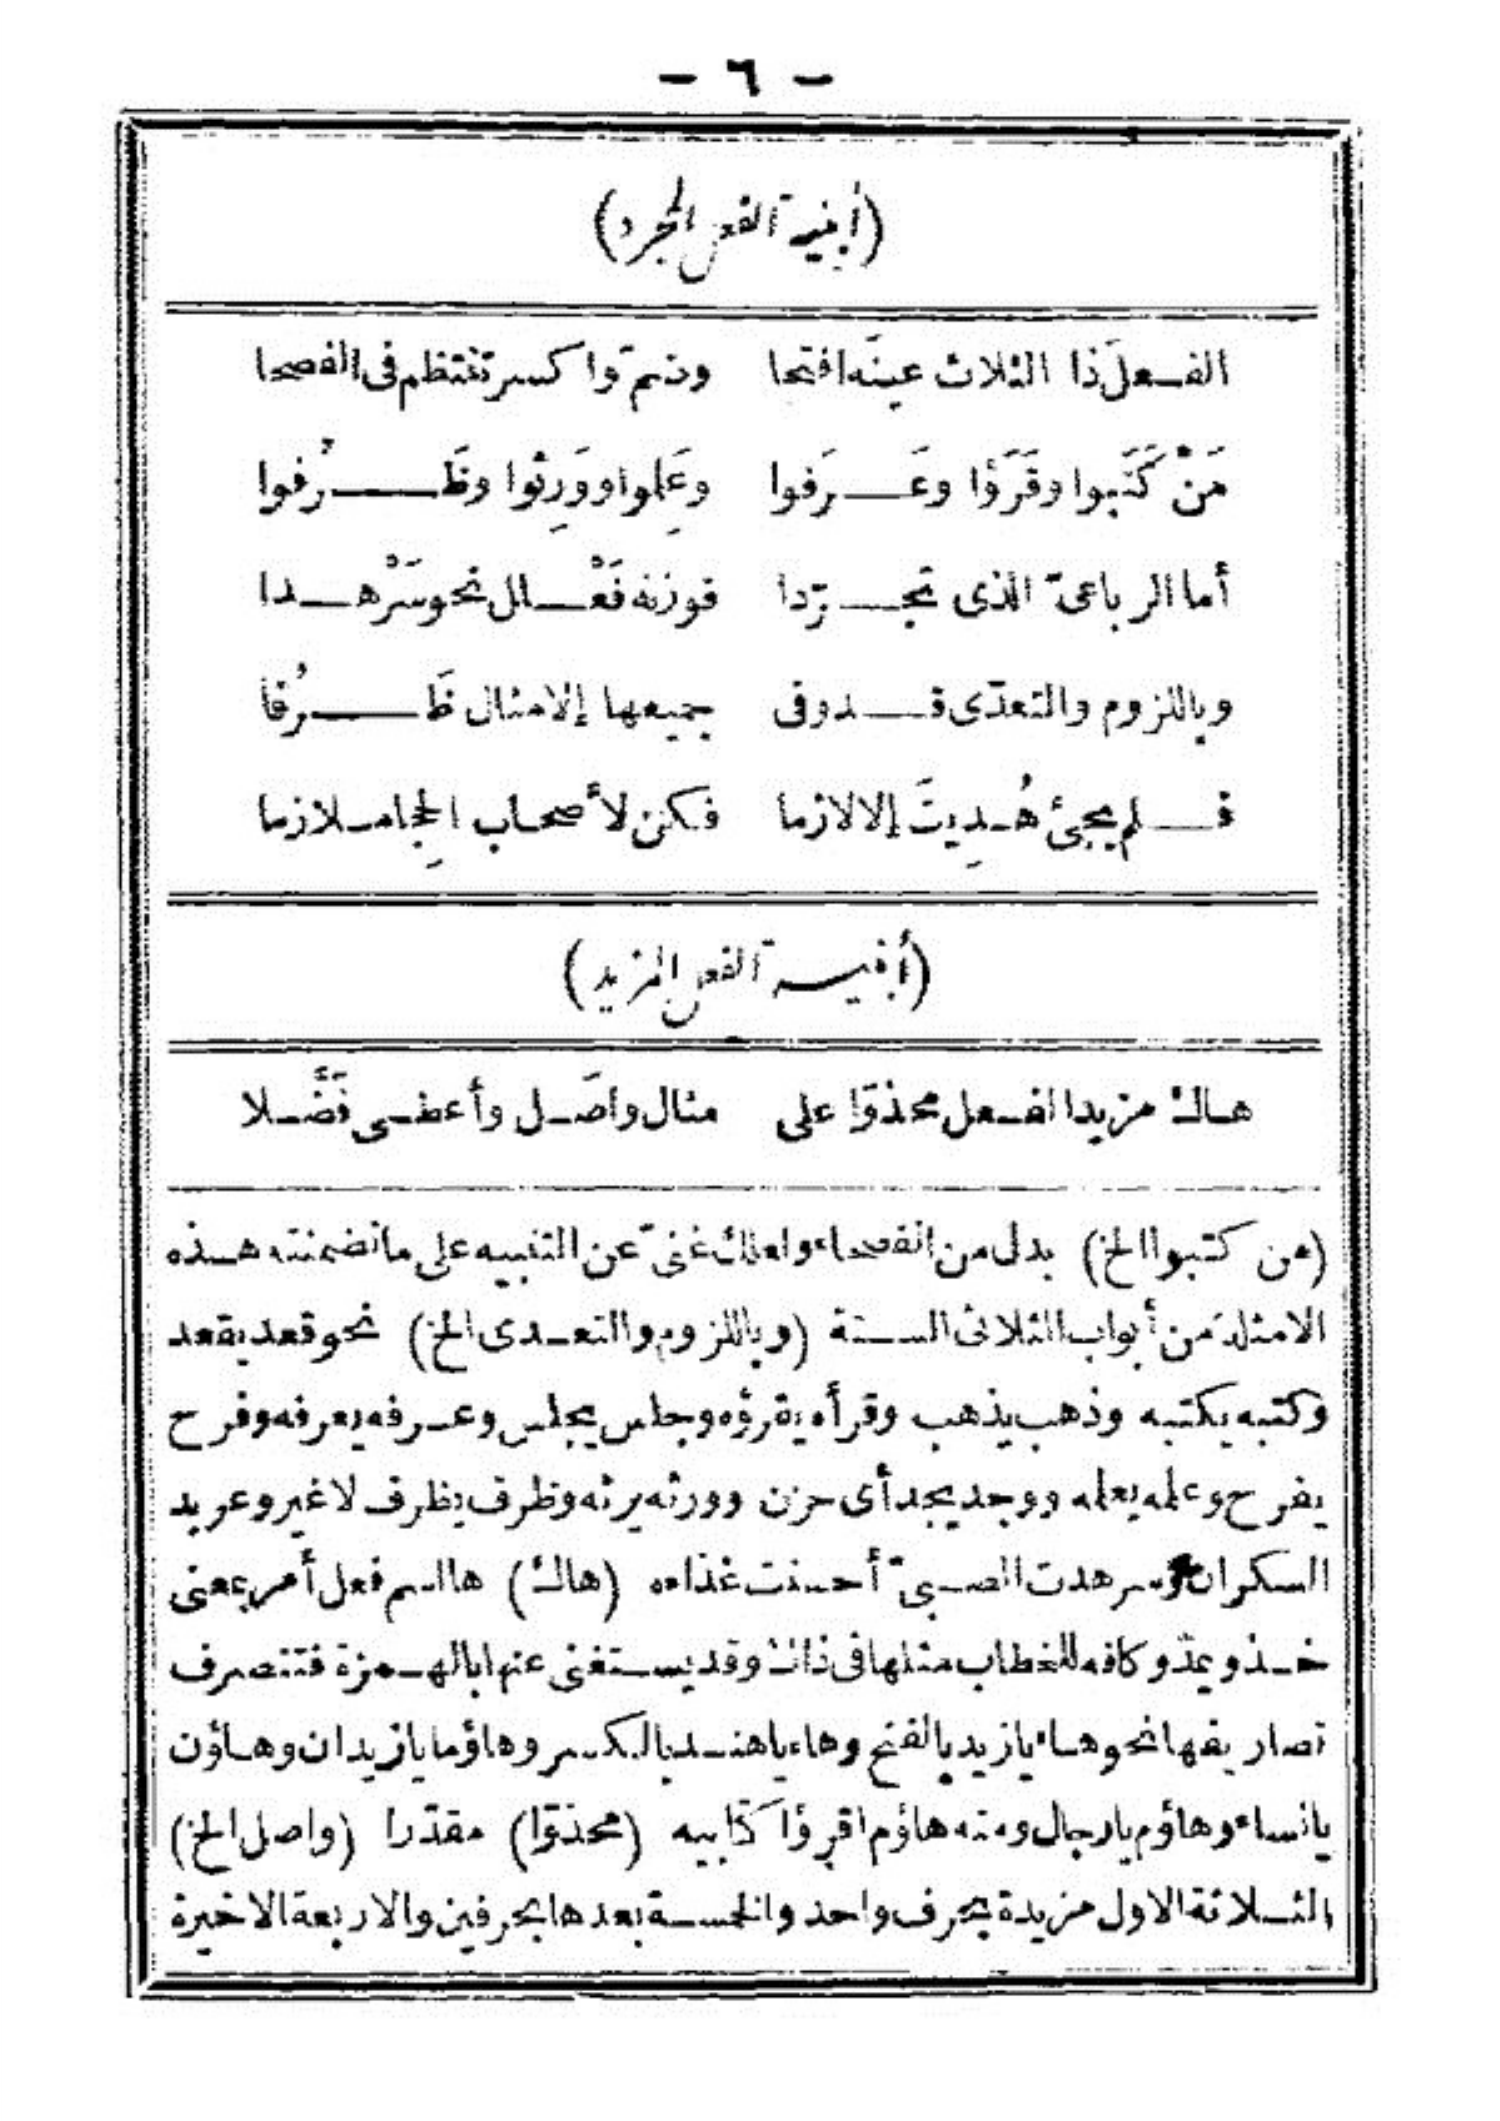 - ٦ -
(أبنية الفعل المجرد)
الفعلَ ذا الثلاث عينَه افتحا وضمّ واكسر تنتظم فى الفصحا
مَنْ كَتَبوا وقَرَؤا وعَرَفوا وعَلِموا ووَرِثوا وظَرُفوا
أما الرباعىّ الذى تجرّدا فوزنه فَعْلل نحو سَرْهدا
وباللزوم والتعدّى قد وفى جميعها إلا مثال ظَرُفا
فلم يجئ هُدِيتَ إلا لازما فكن لأصحاب الحِجا ملازما
(أبنية الفعل المزيد)
هاك مزيد الفعل محذوّا على مثال واصَل وأعطى فَضَّلا
(من كتبوا الخ) بدل من الفصحاء ولعلك غنىّ عن التنبيه على ما تضمنته هذه
الامثلة من أبواب الثلاثى الستة (وباللزوم والتعدى الخ) نحو قعد يقعد
وكتبه يكتبه وذهب يذهب وقرأه يقرؤه وجلس يجلس وعرفه يعرفه وفرح
يفرح وعلمه يعلمه ووجد يجد أى حزن وورثه يرثه وظرف يظرف لا غير وعربد
السكران وسرهدت الصبىّ أحسنت غذاءه (هاك) ها اسم فعل أمر بمعنى
خذ ويمدّ وكافه للخطاب مثلها فى ذاك وقد يستغنى عنها بالهمزة فتتصرف
تصاريفها نحو هاء يا زيد بالفتح وهاء يا هند بالكسر وهاؤما يا زيدان وهاؤن
يا نساء وهاؤم يا رجال ومنه هاؤم اقرؤا كتابيه (محذوّا) مقدّرا (واصل الخ)
الثلاثة الاول مزيدة بحرف واحد والخمسة بعدها بحرفين والاربعة الاخيرة